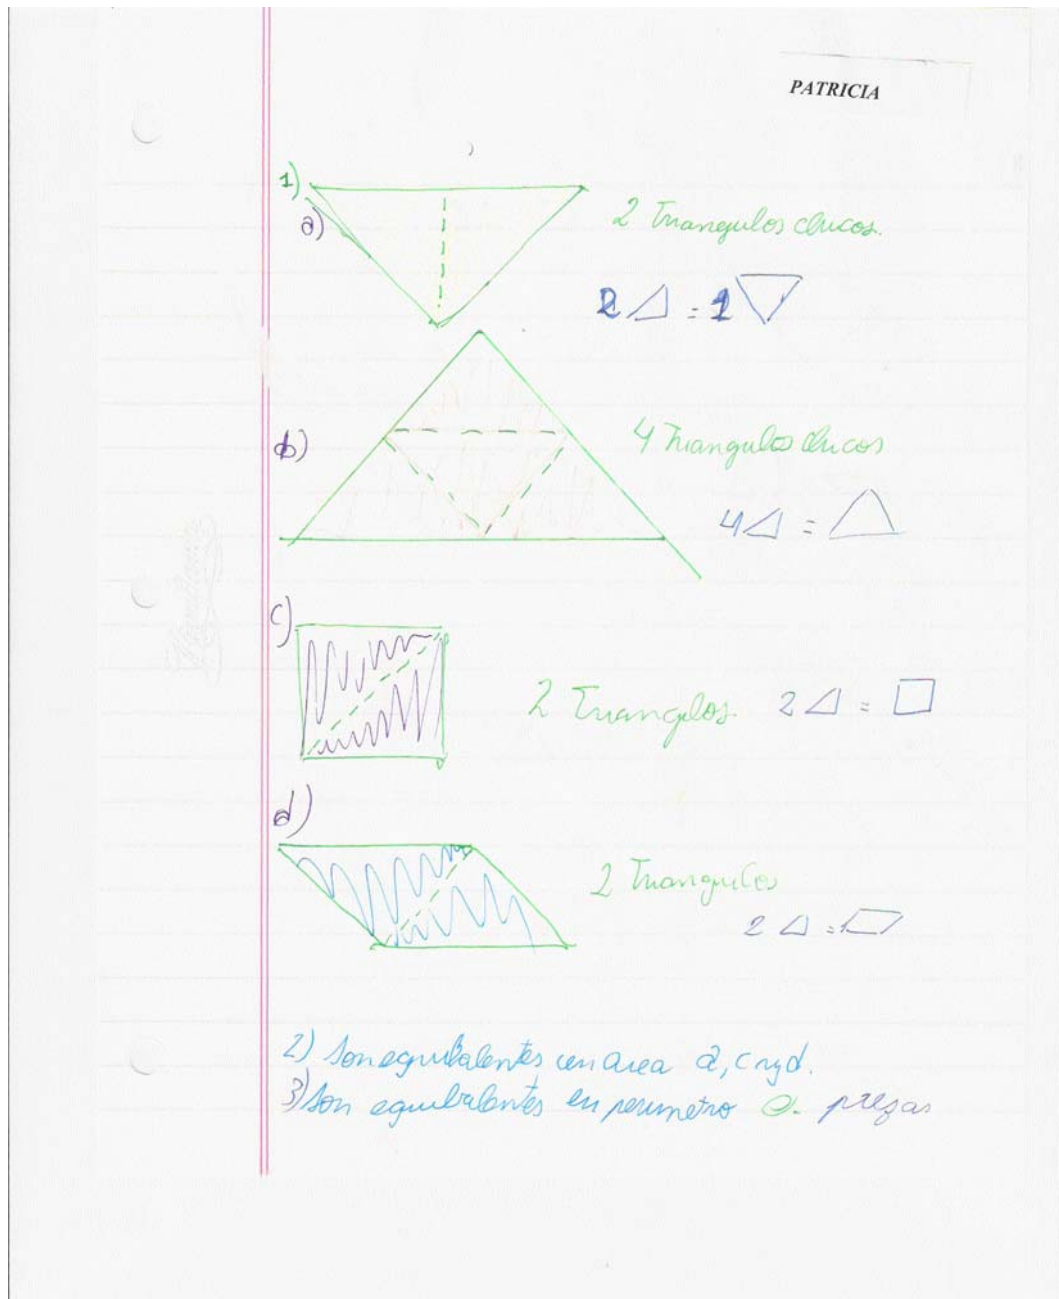 PATRICIA
1)
a)
2 Triangulos chicos.
2 = 1
b)
4 Triangulos chicos
4 =
c)
2 Triangulos. 2 =
d)
2 Triangulos
2 =
2) Son equibalentes en area a, c y d.
3) Son equibalentes en perimetro piezas